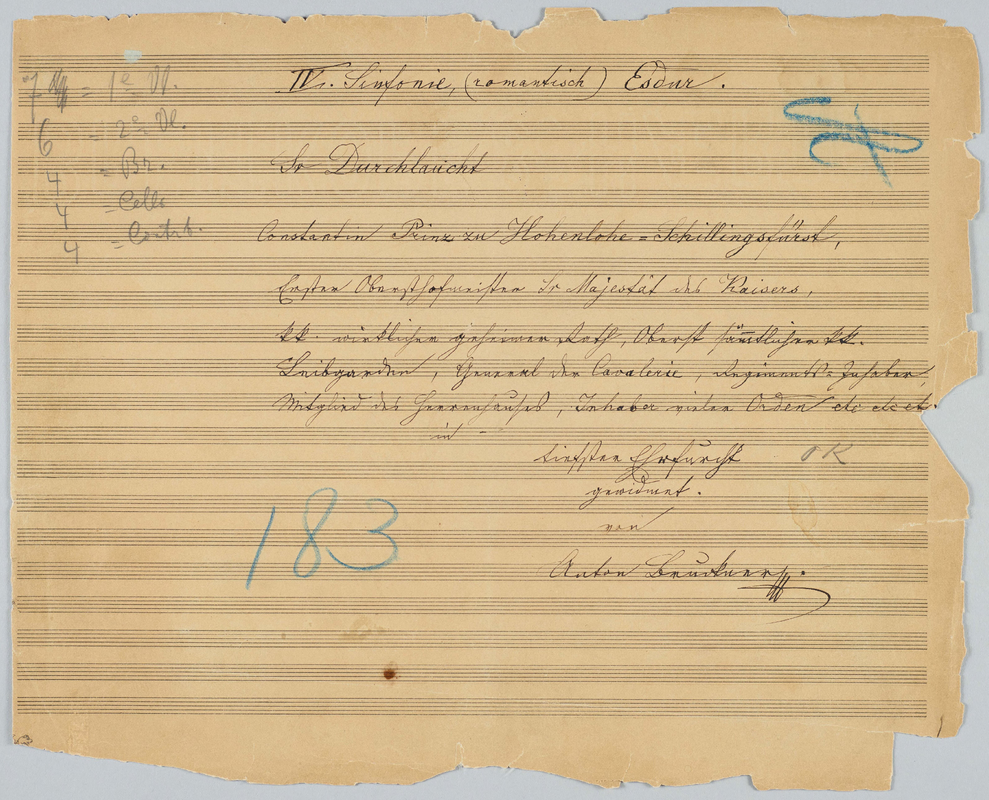 IV. Sinfonie, (romantisch) Esdur.
7 = 1e Vl.
6 = 2e Vl.
4 = Br.
4 = Celli
4 = Contrb.
Sr Durchlaucht
Constantin Prinz zu Hohenlohe=Schillingsfürst,
Erster Obersthofmeister Sr Majestät des Kaisers,
kk. wirklicher geheimer Rath, Oberst sämtlicher kk.
Leibgarden, General der Cavalerie, Regiments=Inhaber,
Mitglied des Herrenhauses, Inhaber vieler Orden etc etc etc.
in
tiefster Ehrfurcht
OK
gewidmet.
von
183
Anton Bruckner.